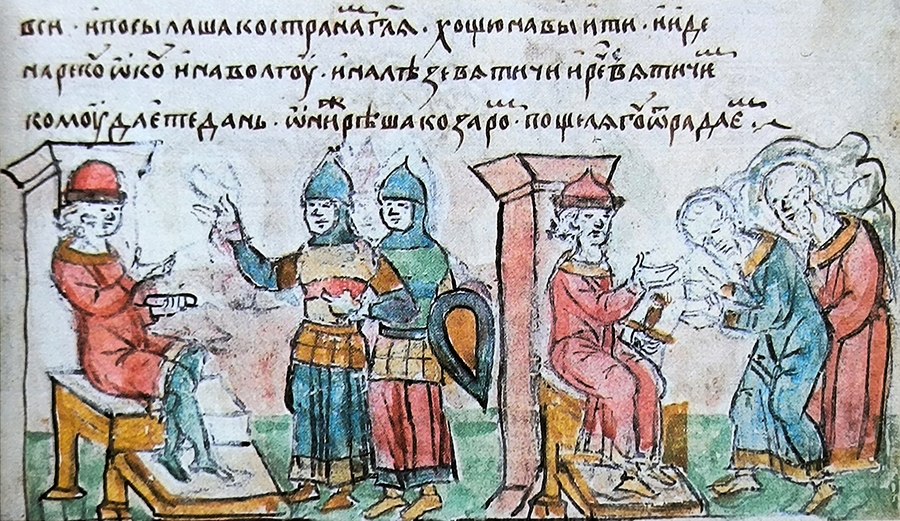 вси · и посылаша ко странаⷨ гл҃я · хощю на вы ити · и иде
на рекоу ѡкоу и на волгоу · и налѣзе вятичи и реⷱ҇ вятичиⷨ
комоу даете дань · ѡниⷤ рѣша козароⷨ · по щелягоу ѿ рала даеⷨ ·